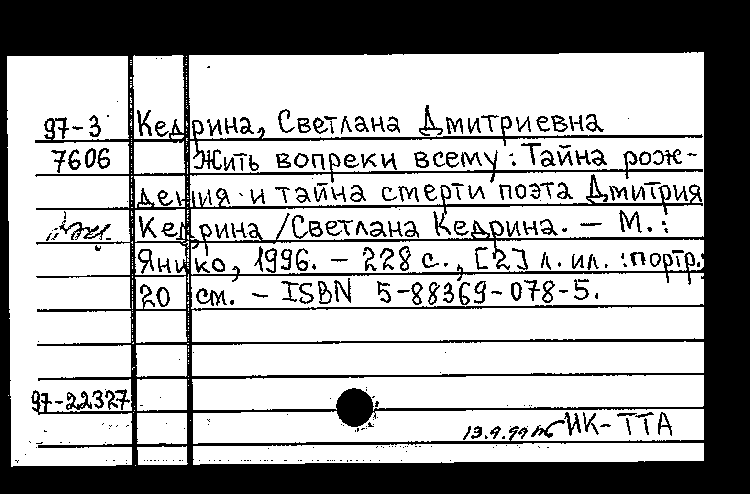 97-3 Кедрина, Светлана Дмитриевна
7606 Жить вопреки всему : Тайна рож-
дения и тайна смерти поэта Дмитрия
Кедрина / Светлана Кедрина. – М. :
Янико, 1996. – 228 с., [2] л. ил. : портр.;
20 см. – ISBN 5-88369-078-5.
97-22327
13.9.99 ИК-ТТА